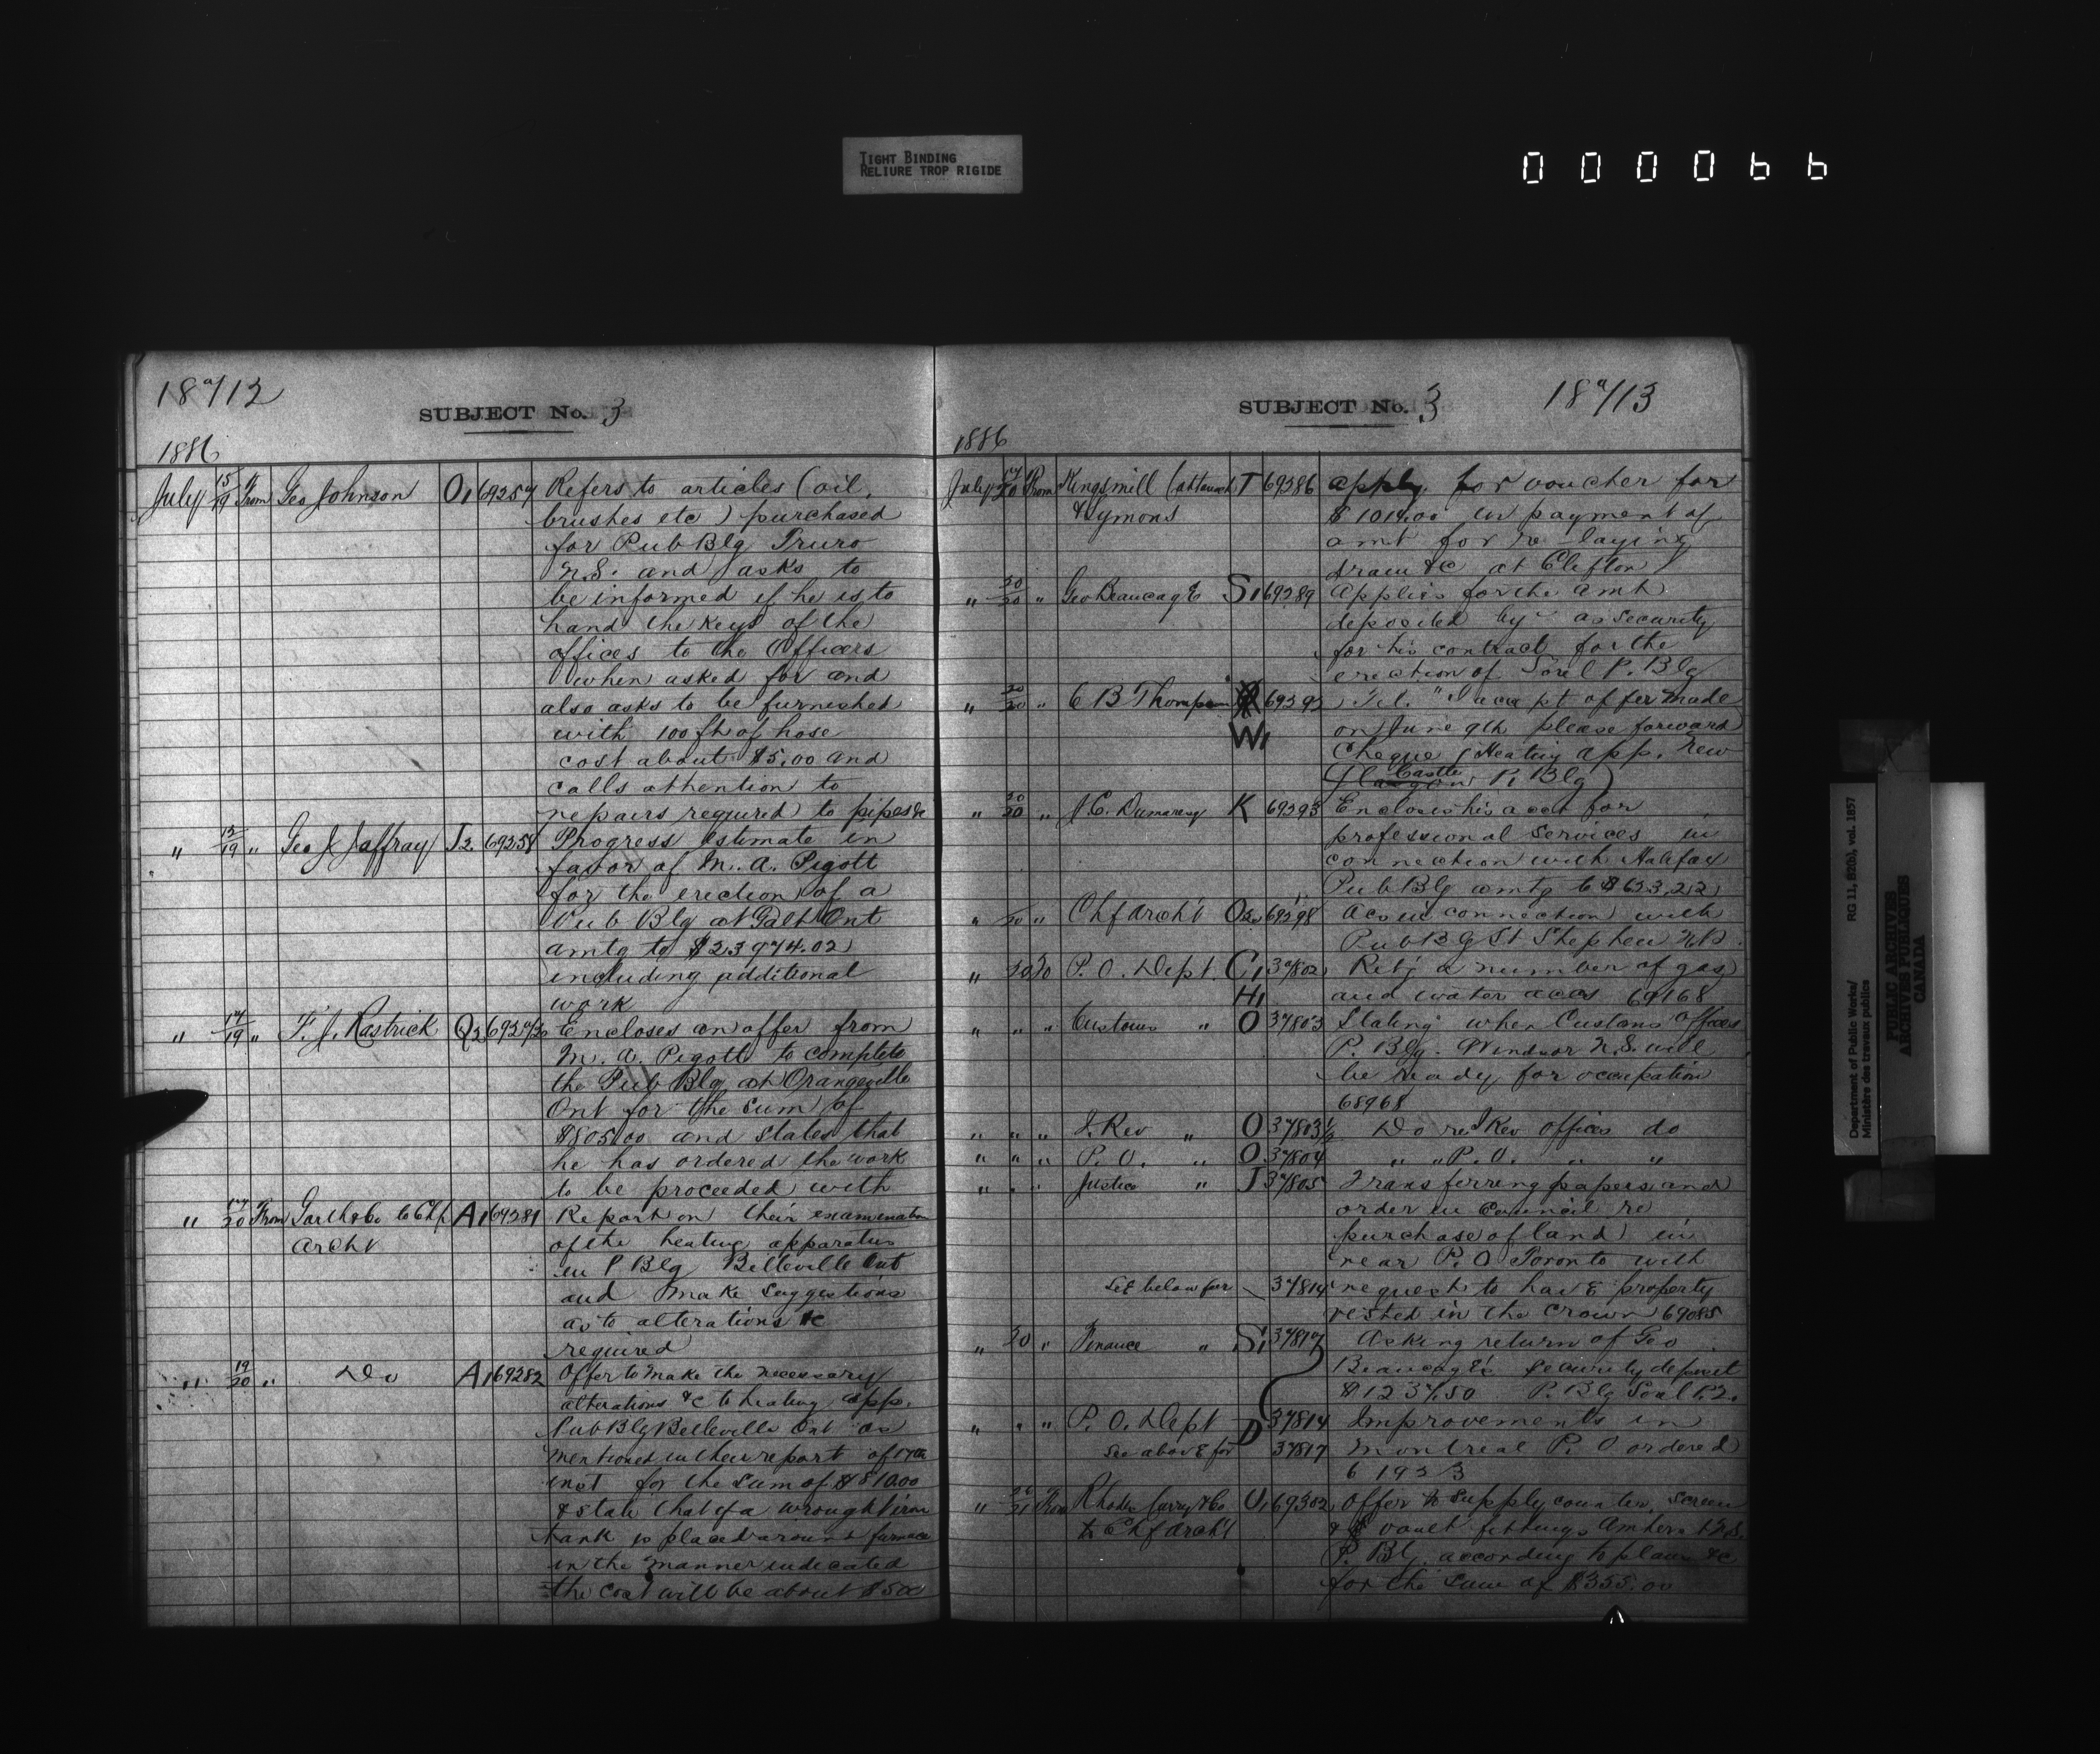 TIGHT BINDING
RELIURE TROP RIGIDE
000066
18a/12
SUBJECT No. 3
1886
July 15/19 From Geo Johnson O1 69257 Refers to articles (oil,
brushes etc) purchased
for Pub Blg Truro
N.S. and asks to
be informed if he is to
hand the keys of the
offices to the Officers
when asked for and
also asks to be furnished
with 100 ft of hose
cost about $5.00 and
calls attention to
repairs required to pipes &c
" 15/19 " Geo J Jaffray J2. 69258 Progress Estimate in
favor of M. A. Pigott
for the erection of a
Pub Blg at Galt Ont
amtg to $23974.02
including additional
work
" 17/19 " F. J. Rastrick Q2 Encloses an offer from
M. A. Pigott to complete
the Pub Blg at Orangeville
Ont for the sum of
$805.00 and states that
he has ordered the work
to be proceeded with
" 17/20 From Garth & Co to Chf A1 69281 Report on their examination
Archt of the heating apparatus
in P Blg Belleville Ont
and make suggestions
as to alterations &c
required
" 19/20 " Do A1 69282 Offer to make the necessary
alterations &c to heating app.
Pub Blg Belleville Ont as
mentioned in their report of 17th
inst for the sum of $810.00
& state that if a wrought iron
tank is placed around furnace
in the manner indicated
the cost will be about $500
SUBJECT No. 3
18a/13
1886
July 17/20 From Kingsmill T 69286 apply for voucher for
& Symons $1014.00 in payment of
amt for re-laying
drain &c at Clifton
" 20/20 " Geo Beaucage S1 69289 Applies for the amt
deposited by as security
for his contract for the
erection of Sorel P. Blg
" 20/20 " C B Thompson 69292 Tel. "I accept offer made
W1 on June 9th please forward
Cheque (Heating app. New
Castle P. Blg)
" 20/20 " J C. Dumaresq K 69293 Encloses his acct for
professional services in
connection with Halifax
Pub Blg amtg to $623.22
" /20 " Chf Archt O2 69298 Acs in connection with
Pub Blg St Stephen N.B.
" 20 20 P. O. Dept. C1 37802 Retg a number of gas
H1 and water accs 69168
" " " Customs " O 37803 Stating when Customs Offices
P. Blg. Windsor N.S. will
be ready for occupation
68968
" " " I. Rev " O 37803½ Do re I Rev offices do
" " " P. O. " O 37804 " " P. O. " "
" " " Justice " J 37805 Transferring papers and
order in Council re
purchase of land in
rear P. O Toronto with
See below for 37814 request to have property
vested in the Crown 69085
" 20 " Finance " S1 37817 Asking return of Geo
Beaucage's security deposit
$1237.50 P. Blg Sorel P.Q.
" " " P. O. Dept D 37814 Improvements in
See above for 37817 Montreal P. O ordered
" 20/21 From Rhodes Curry & Co U1 69302 Offer to supply counter, screen
to Chf Archt & vault fittings Amherst N.S.
P. Blg. according to plans &c
for the sum of $355.00
Department of Public Works/ RG 11, B2(b), vol. 1857
Ministère des travaux publics
PUBLIC ARCHIVES
ARCHIVES PUBLIQUES
CANADA